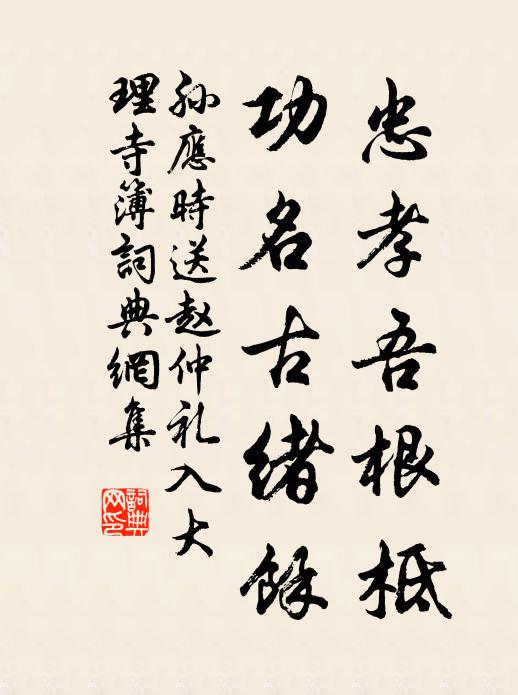 忠孝吾根柢
功名古緒餘
孙應時送赵仲礼入大
理寺簿詞典網集
詞典
网印